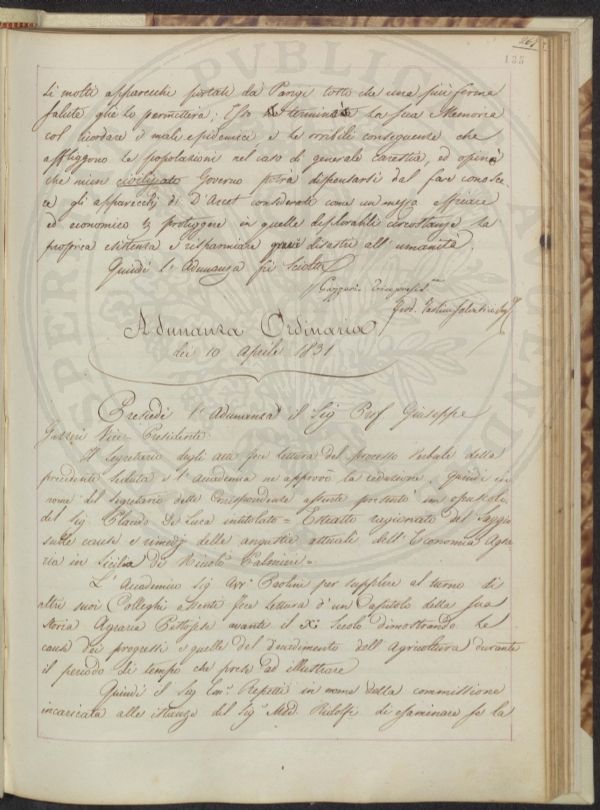 267
135
di molti apparecchi portati da Parigi tosto che una più ferma
salute glie lo permetterà; Esso terminò la sua Memoria
col ricordare i mali epidemici e le orribili conseguenze che
affliggono le popolazioni nel caso di generale carestia, ed opinò
che niun civilizzato Governo potrà dispensarsi dal fare conosce-
re gli apparecchj di D'Arcet considerati come un mezzo efficace
ed economico di proteggere in quelle deplorabili circostanze la
fisica esistenza e risparmiare gravi disastri all'umanità.
Quindi l'Adunanza fù sciolta
Adunanza Ordinaria
dei 10 Aprile 1831
Presedè l'Adunanza il Sig Prof Giuseppe
Gazzeri Vice-Presidente.
Il Segretario degli atti fece lettura del processo Verbale della
precedente seduta e l'Accademia ne approvò la redazione. Quindi in
nome del Segretario delle Corrispondenze assente presentò un opuscolo
del Sig. Claudo De Luca intitolato = Estratto ragionato del Saggio
sulle cause e rimedj delle angustie attuali dell'Economia Agra
ria in Sicilia di Niccolò Palmieri =.
L'Accademico Sig Avv. Paolini per supplire al turno di
altri suoi Colleghi assenti fece lettura d'un Capitolo della sua
Storia Agraria Pistojese avanti il XI Secolo dimostrando le
cause dei progressi e quelle del decadimento dell'Agricoltura durante
il periodo di tempo che prese ad illustrare
Quindi il Sig Em. Repetti in nome della commissione
incaricata alle istanze del Sig. Mse. Ridolfi di esaminare se la